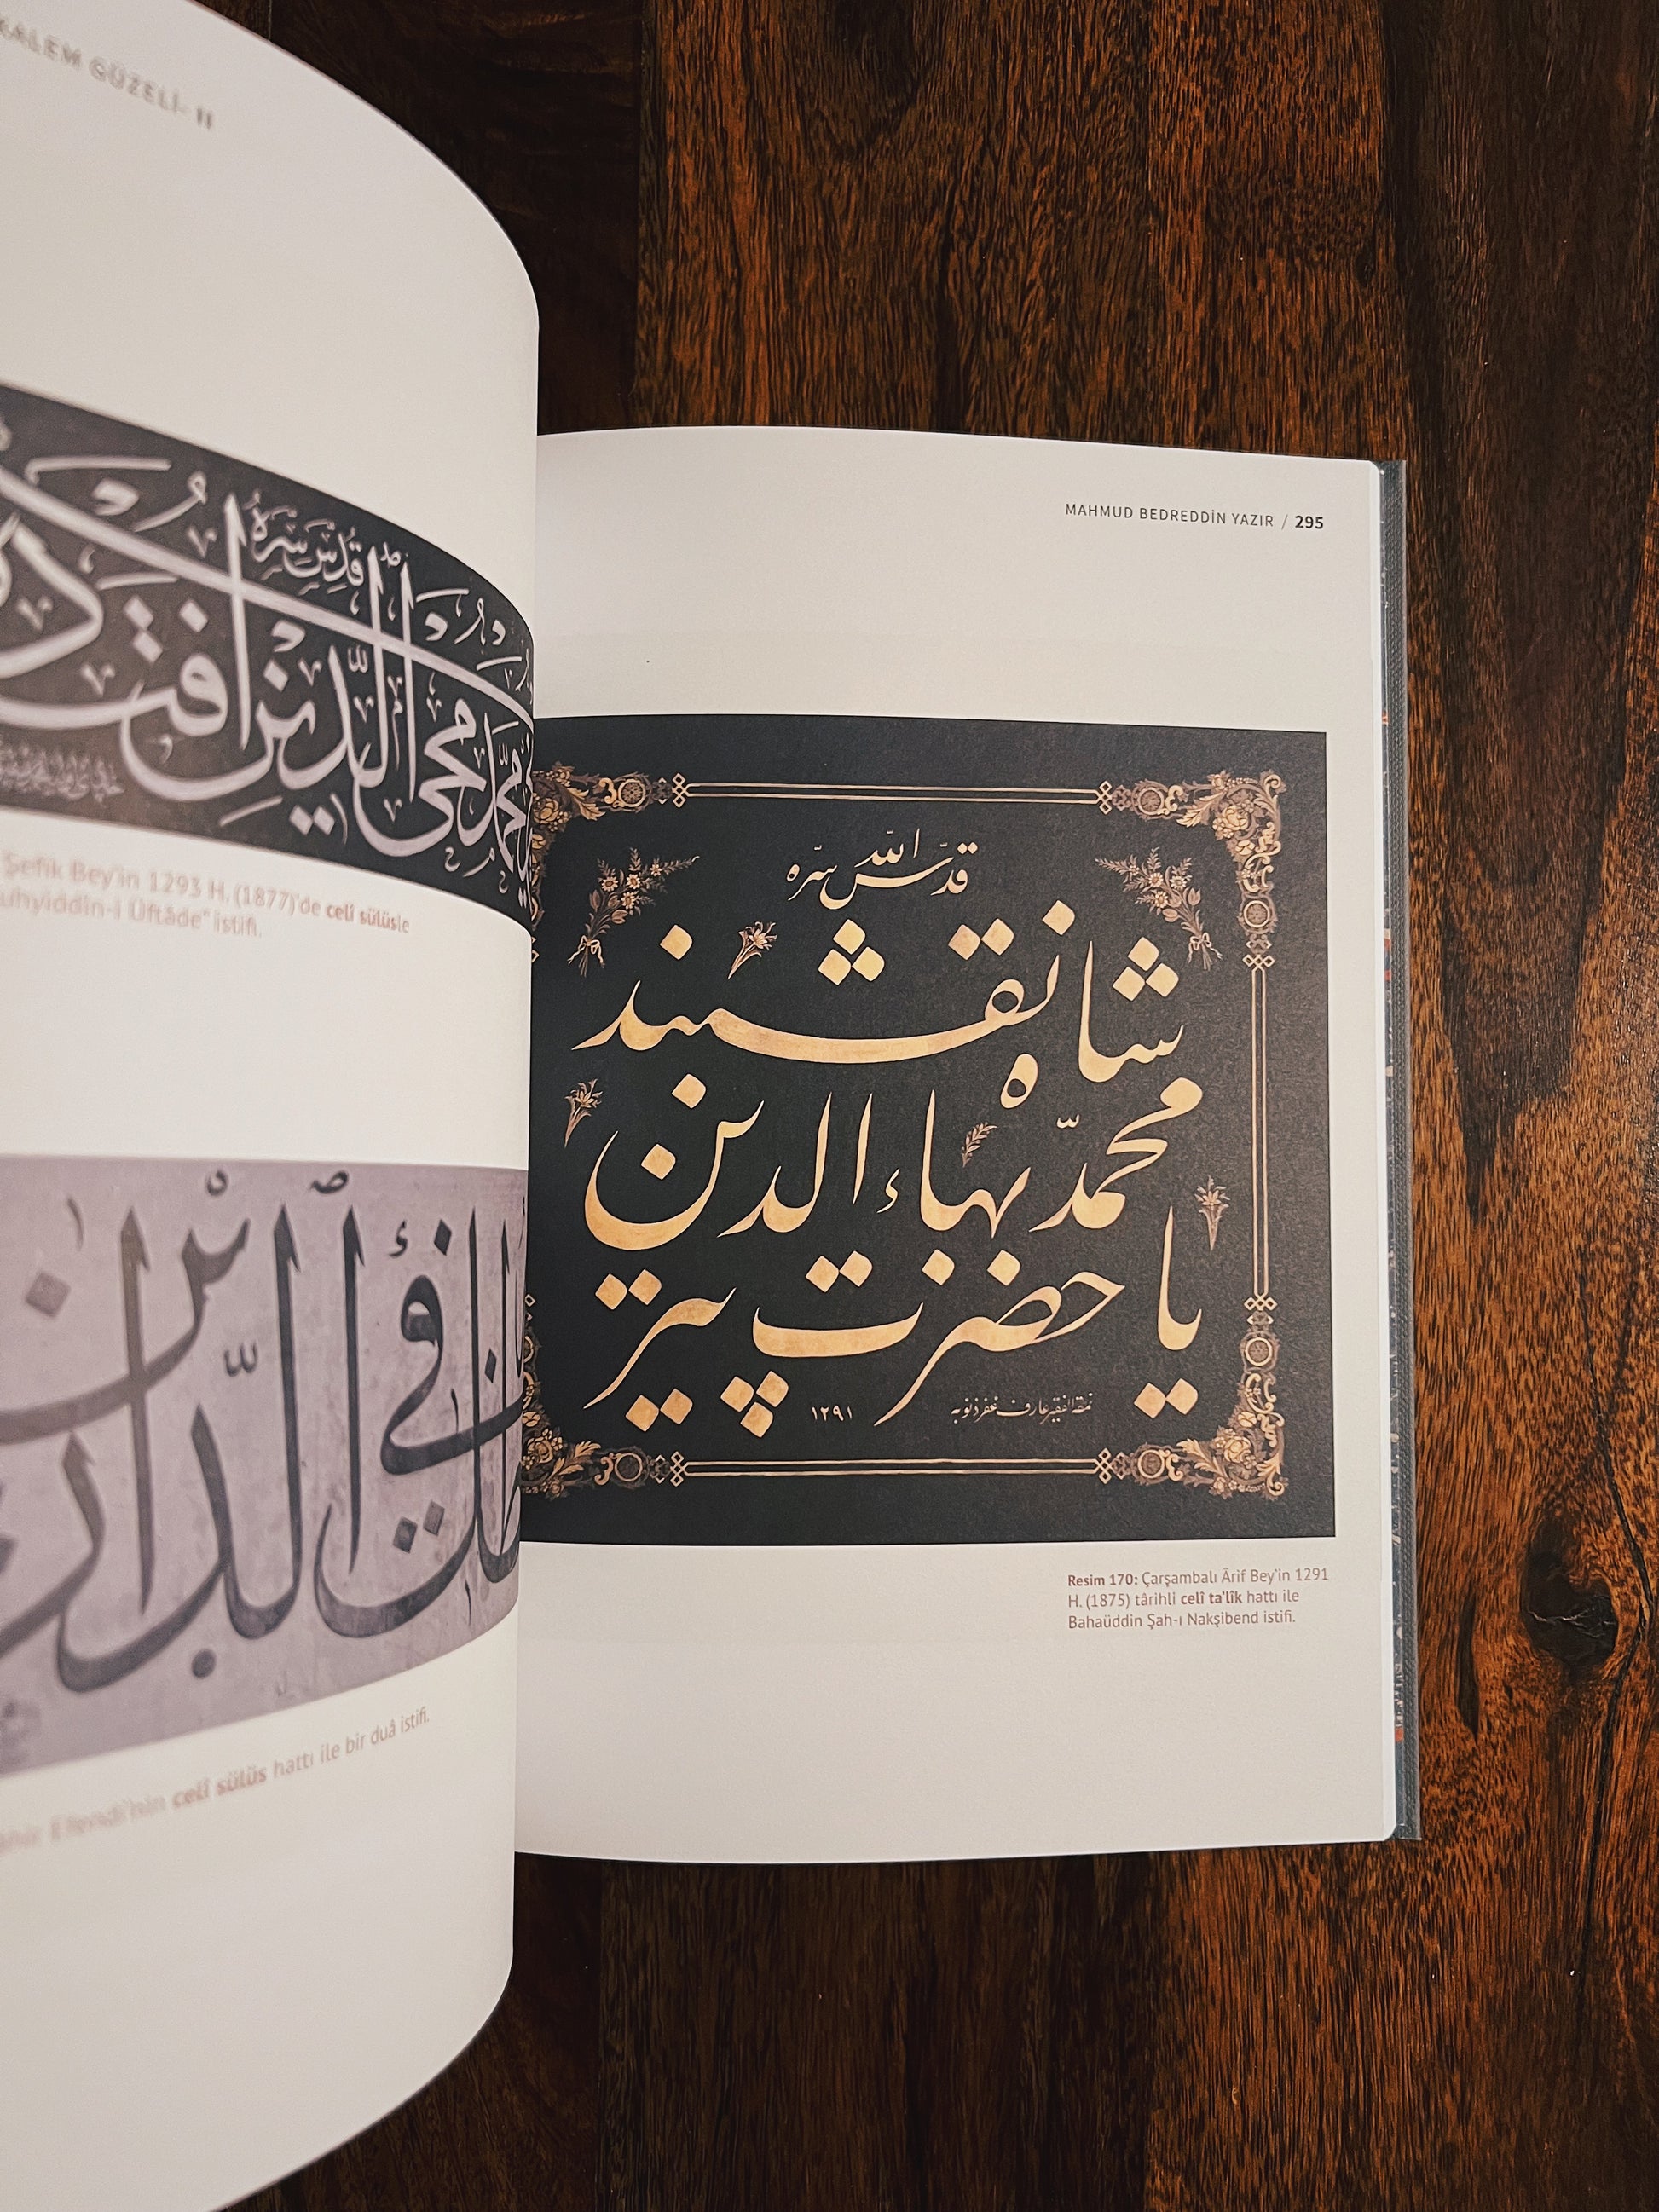 KALEM GÜZELİ- II
قدّس سرّه
محمّد محيى الدّين افتاده
Şefik Bey'in 1293 H. (1877)'de celî sülüsle
uhyiddîn-i Üftâde" istifi.
Efendi'nin celî sülüs hattı ile bir duâ istifi.
MAHMUD BEDREDDİN YAZIR / 295
قدّس اللّه سرّه
شاه نقشبند
محمّد بهاء الدين
يا حضرت پير
نمقه الفقير عارف غفر ذنوبه
١٢٩١
Resim 170: Çarşambalı Ârif Bey'in 1291
H. (1875) târihli celî ta'lîk hattı ile
Bahaüddin Şah-ı Nakşibend istifi.